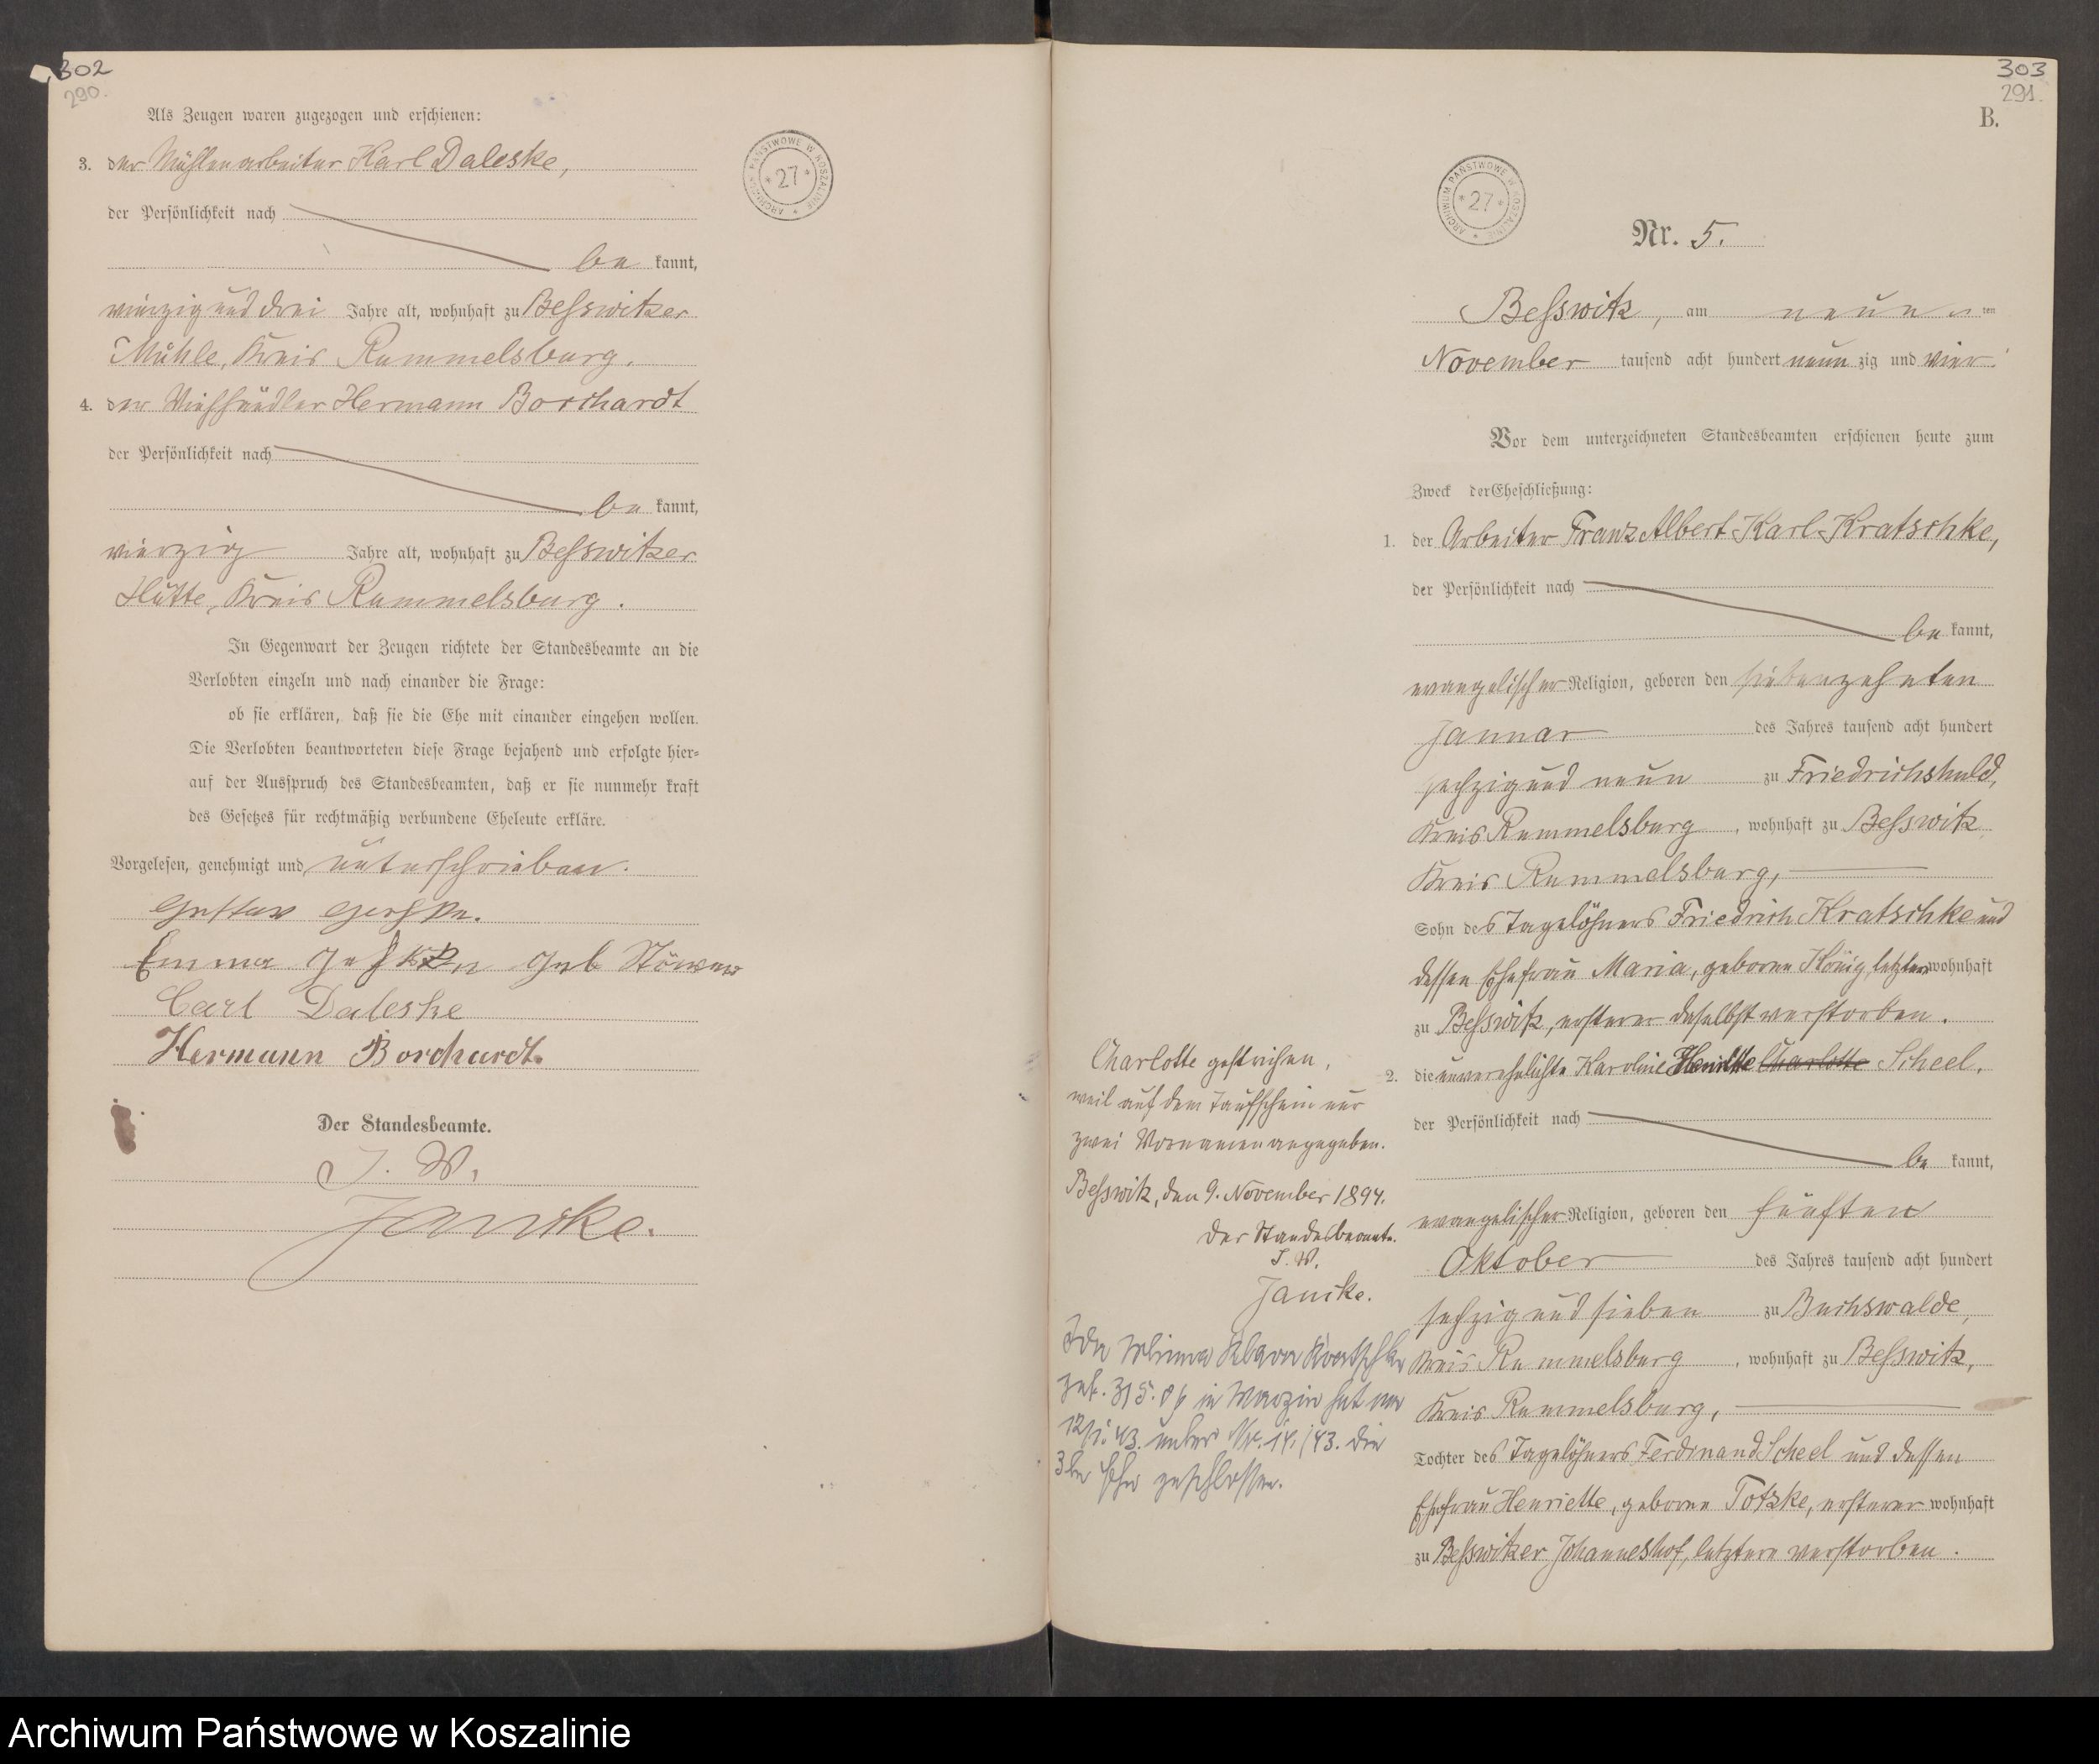 302
290.
Als Zeugen waren zugezogen und erschienen:
3. der Mühlenarbeiter Karl Daleske,
der Persönlichkeit nach
be kannt,
vierzig und drei Jahre alt, wohnhaft zu Besswitzer
Mühle, Kreis Rummelsburg.
4. der Viehhändler Hermann Borchardt
der Persönlichkeit nach
be kannt,
vierzig Jahre alt, wohnhaft zu Besswitzer
Hütte, Kreis Rummelsburg.
In Gegenwart der Zeugen richtete der Standesbeamte an die
Verlobten einzeln und nach einander die Frage:
ob sie erklären, daß sie die Ehe mit einander eingehen wollen.
Die Verlobten beantworteten diese Frage bejahend und erfolgte hier-
auf der Ausspruch des Standesbeamten, daß er sie nunmehr kraft
des Gesetzes für rechtmäßig verbundene Eheleute erkläre.
Vorgelesen, genehmigt und unterschrieben.
Gustav
Emma geb Stöwer
Carl Daleske
Hermann Borchardt.
Der Standesbeamte.
J. V.
Jancke.
ARCHIWUM PAŃSTWOWE W KOSZALINIE
* 27 *
303
291.
B.
ARCHIWUM PAŃSTWOWE W KOSZALINIE
* 27 *
Nr. 5.
Besswitz, am neun ten
November tausend acht hundert neun zig und vier.
Vor dem unterzeichneten Standesbeamten erschienen heute zum
Zweck der Eheschließung:
1. der Arbeiter Franz Albert Karl Kratschke,
der Persönlichkeit nach
be kannt,
evangelischer Religion, geboren den siebenzehnten
Januar des Jahres tausend acht hundert
sechzig und neun zu Friedrichshuld,
Kreis Rummelsburg, wohnhaft zu Besswitz,
Kreis Rummelsburg,
Sohn des Tagelöhners Friedrich Kratschke und
dessen Ehefrau Maria, geborne König, letztere wohnhaft
zu Besswitz, ersterer daselbst verstorben.
2. die unverehelichte Karoline Henriette Charlotte Scheel,
der Persönlichkeit nach
be kannt,
evangelischer Religion, geboren den fünften
Oktober des Jahres tausend acht hundert
sechzig und sieben zu Buchswalde,
Kreis Rummelsburg, wohnhaft zu Besswitz,
Kreis Rummelsburg,
Tochter des Tagelöhners Ferdinand Scheel und dessen
Ehefrau Henriette, geborne Totzke, ersterer wohnhaft
zu Besswitzer Johanneshof, letztere verstorben.
Charlotte gestrichen,
weil auf dem Taufschein nur
zwei Vornamen angegeben.
Besswitz, den 9. November 1894.
Der Standesbeamte.
J. V.
Jancke.
Ida Klara Kratschke
geb. in Varzin hat am
unter Nr. 14/43. die
3te Ehe geschlossen.
Archiwum Państwowe w Koszalinie